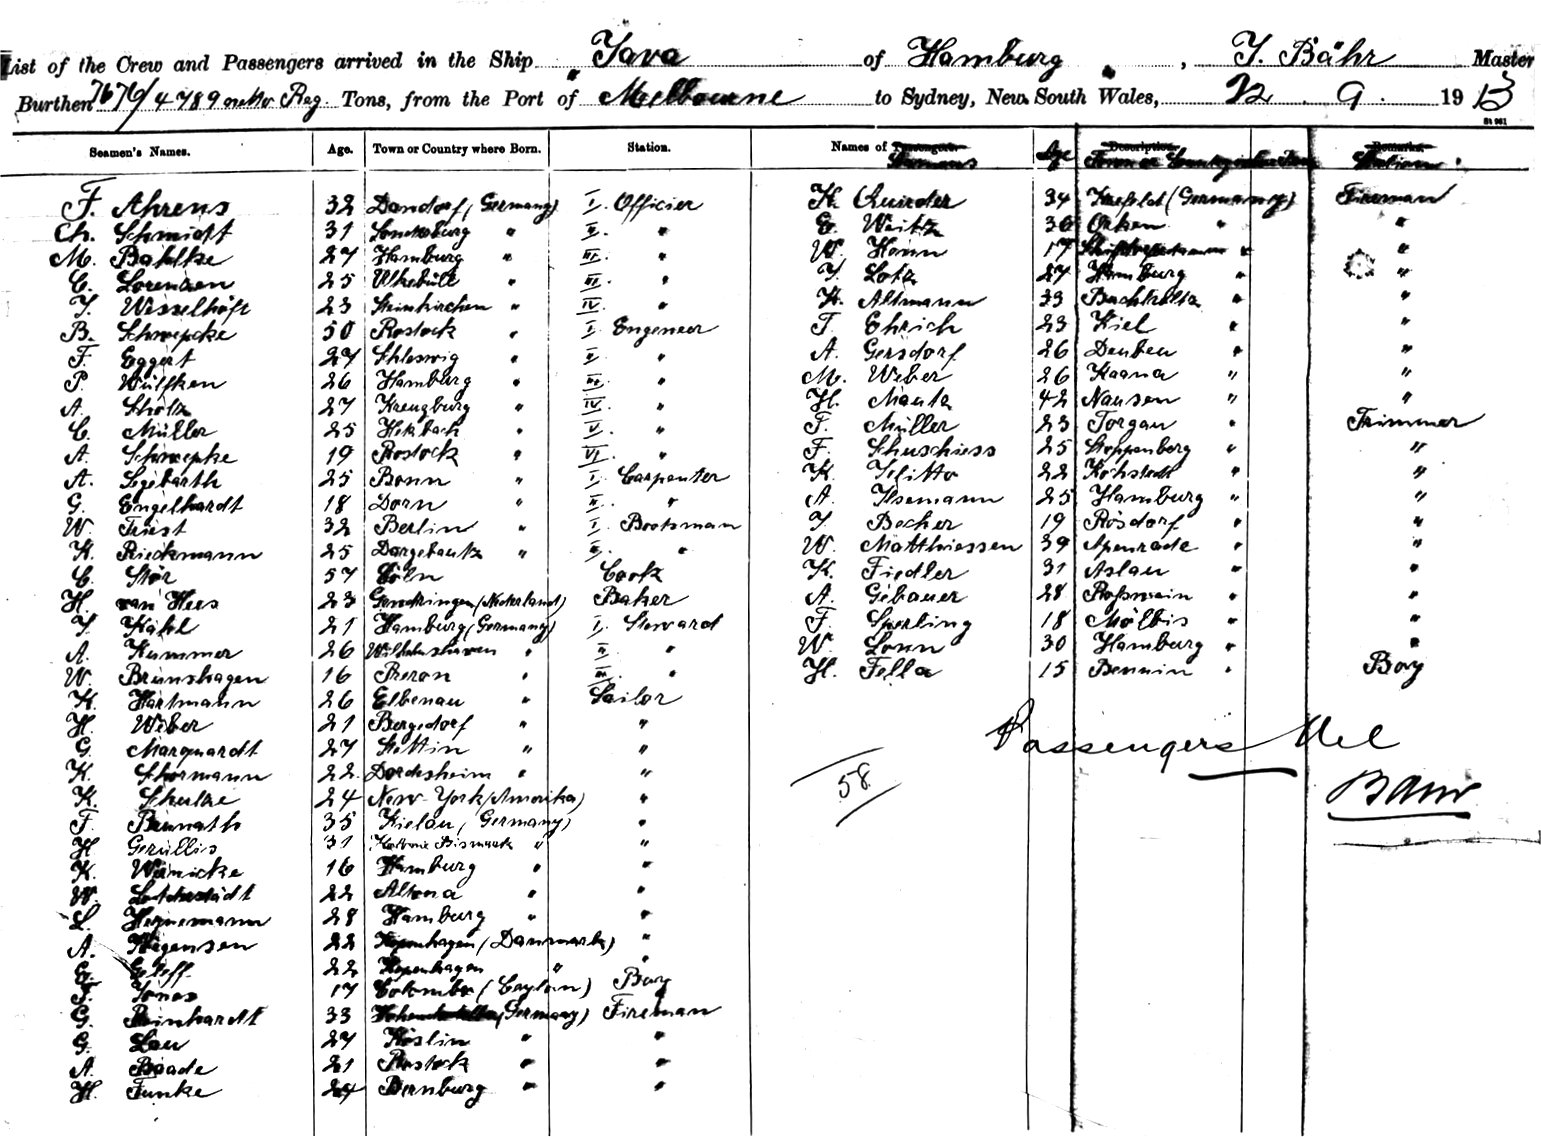 List of the Crew and Passengers arrived in the Ship "Java of Hamburg", J. Bähr Master
Burthen 7676/4789 netto Reg. Tons, from the Port of Melbourne to Sydney, New South Wales, 22. 9. 1913
St 961
Seamen's Names. Age. Town or Country where Born. Station.
F. Ahrens 32 Dandorf (Germany) I. Officier
Ch. Schmidt 31 " II. "
M. Bahlke 27 Hamburg " III. "
C. Lorenzen 25 " III. "
J. Wisselhöft 23 Steinkirchen " IV. "
B. Schwepcke 50 Rostock " I. Engeneer
F. Eggert 27 Schleswig " II. "
P. Wülfken 26 Hamburg " III. "
A. Scholz 27 Kreuzburg " IV. "
C. Müller 25 " V. "
A. Schwepke 19 Rostock " VI. "
A. Segebarth 25 Bonn " I. Carpenter
G. Engelhardt 18 Dorn " II. "
W. Triest 32 Berlin " I. Bootsman
K. Rieckmann 25 " II. "
C. Stör 57 Cöln Cook
H. van Hees 23 Gendringen (Nederland) Baker
J. Kahl 21 Hamburg (Germany) I. Steward
A. Kummer 26 Wilhelmshaven " II. "
W. Brunshagen 16 Preron " III. "
K. Hartmann 26 Elbenau " Sailor
H. Weber 21 Bergedorf " "
G. Marquardt 27 Stettin " "
K. Thormann 22 Dordesheim " "
K. Schulze 24 New-York (Amerika) "
F. 35 Kielau (Germany) "
H. Gerullis 31 Kolonie Bismarck " "
K. Warnicke 16 Hamburg " "
W. 22 Altona " "
L. Heinemann 28 Hamburg " "
A. 22 Kopenhagen (Danmark) "
22 Kopenhagen " "
Jonas 17 Colombo (Ceylon) Boy
G. Reinhardt 33 (Germany) Fireman
G. Lau 27 Köslin " "
A. Baade 21 Rostock " "
H. Funke 24 Bernburg " "
Names of Passengers. Description. Remarks.
Seamens Age Town or Country where Born Station.
K. Quirder 34 Krefeld (Germany) Fireman
G. Weitz 36 Orken " "
W. Hann 17 " "
J. Lotz 27 Hamburg " "
K. Altmann 33 Buchholtz " "
F. Ehrich 23 Kiel " "
A. Gersdorf 26 Deuben " "
M. Weber 26 Kaana " "
H. Mautz 42 Nausen " "
F. Müller 23 Torgau " Trimmer
F. Schuschiess 25 Stoppenberg " "
K. Jelitto 22 " "
A. Ilsemann 25 Hamburg " "
J. Becher 19 Rösdorf " "
W. Matthiessen 39 Apenrade " "
K. Fiedler 31 Aslau " "
A. Gebauer 28 Roßwein " "
F. Sperling 18 Mölbis " "
W. Lonn 30 Hamburg " "
H. Fella 15 Bennin " Boy
Passengers Nil
58